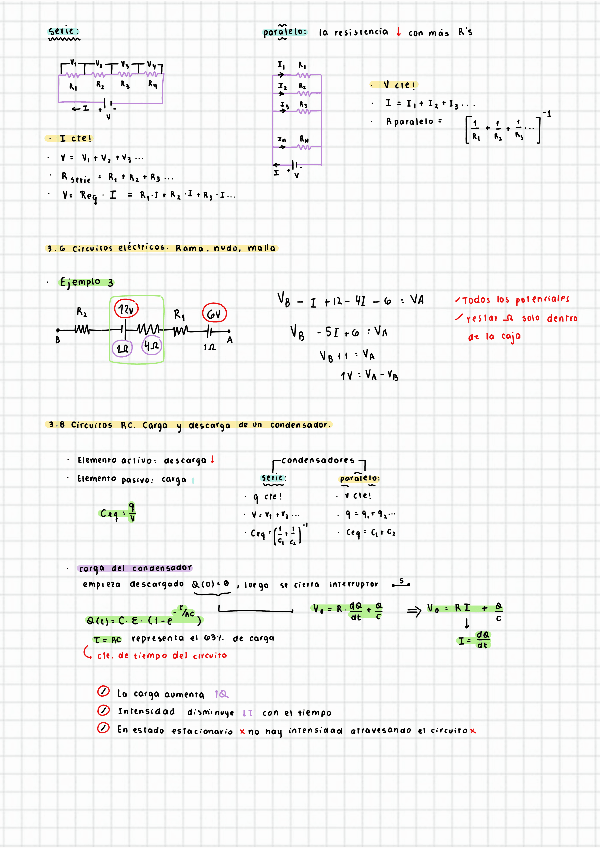 serie:
paralelo: la resistencia ↓ con más R's
V₁ V₂ V₃ V₄
R₁ R₂ R₃ R₄
← I + V
I₁ R₁
I₂ R₂
I₃ R₃
Iₙ Rₙ
I + V
· V cte!
· I = I₁ + I₂ + I₃ ...
· R paralelo = [1/R₁ + 1/R₂ + 1/R₃ ...]⁻¹
· I cte!
· V = V₁ + V₂ + V₃ ...
· R serie = R₁ + R₂ + R₃ ...
· V = Req · I = R₁·I + R₂·I + R₃·I ...
3.6 Circuitos eléctricos. Rama, nudo, malla
· Ejemplo 3
R₂ 12V R₁ 6V
B 1Ω 4Ω 1Ω A
V_B - I + 12 - 4I - 6 = V_A
V_B - 5I + 6 = V_A
V_B + 1 = V_A
1V = V_A - V_B
✓ Todos los potenciales
✓ restar Ω solo dentro
de la caja
3.8 Circuitos RC. Carga y descarga de un condensador.
· Elemento activo: descarga ↓
· Elemento pasivo: carga ↑
Ceq = q/V
condensadores
serie:
· q cte!
· V = V₁ + V₂ ...
· Ceq = (1/C₁ + 1/C₂)⁻¹
paralelo:
· V cte!
· q = q₁ + q₂ ...
· Ceq = C₁ + C₂
· carga del condensador
empieza descargado Q(0) = 0, luego se cierra interruptor S
Q(t) = C · ε · (1 - e^(-t/RC))
V₀ = R · dQ/dt + Q/C ⇒ V₀ = RI + Q/C
↓
I = dQ/dt
τ = RC representa el 63% de carga
cte. de tiempo del circuito
✓ La carga aumenta ↑Q
✓ Intensidad disminuye ↓I con el tiempo
✓ En estado estacionario x no hay intensidad atravesando el circuito x